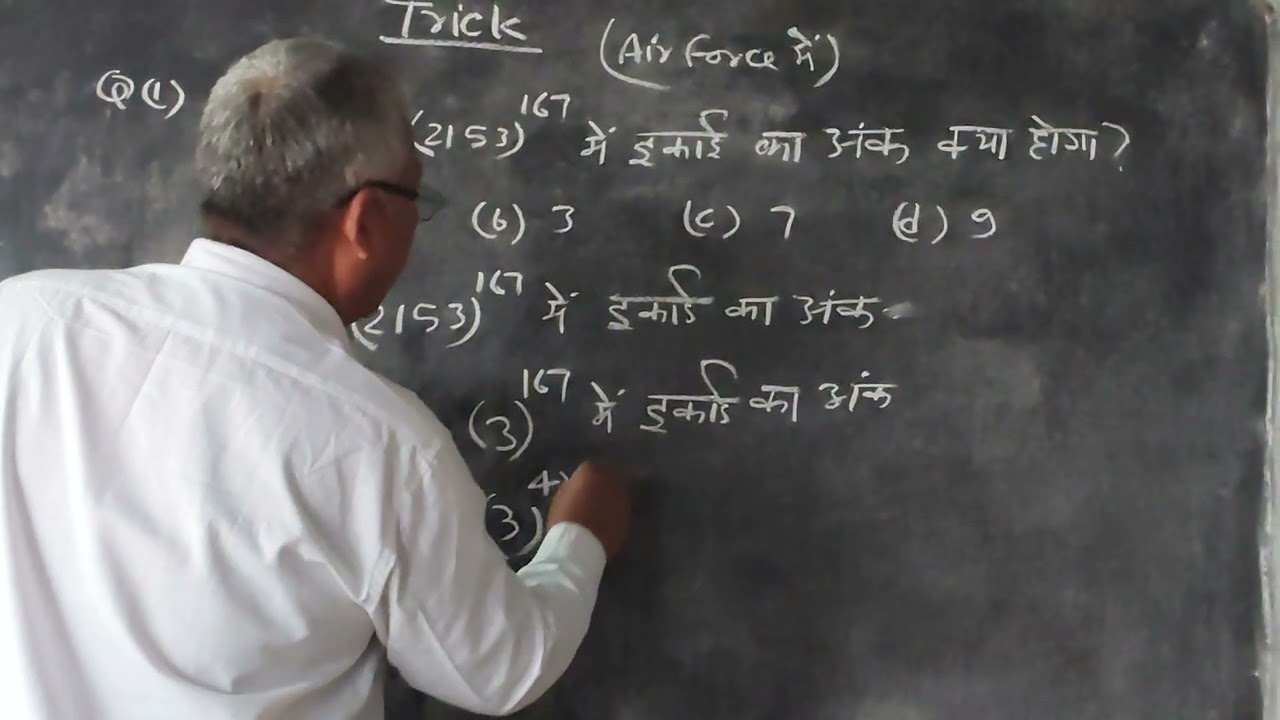 Trick (Air force में)
Q (1) (2153)^167 में इकाई का अंक क्या होगा?
(b) 3 (c) 7 (d) 9
(2153)^167 में इकाई का अंक
(3)^167 में इकाई का अंक
(3)^4